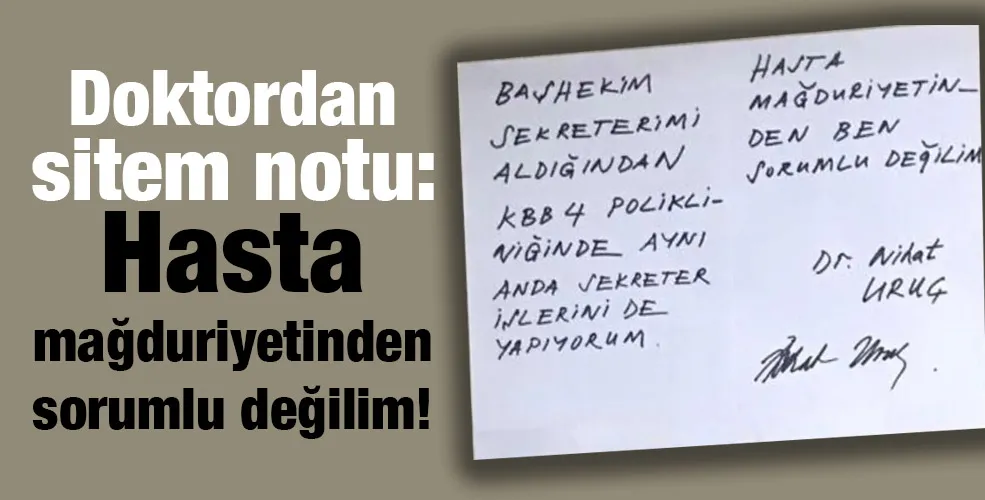 Doktordan
sitem notu:
Hasta
mağduriyetinden
sorumlu değilim!
BAŞHEKİM
SEKRETERİMİ
ALDIĞINDAN
KBB 4 POLİKLİ-
NİĞİNDE AYNI
ANDA SEKRETER
İŞLERİNİ DE
YAPIYORUM.
HASTA
MAĞDURİYETİN-
DEN BEN
SORUMLU DEĞİLİM
Dr. Nihat
URUÇ